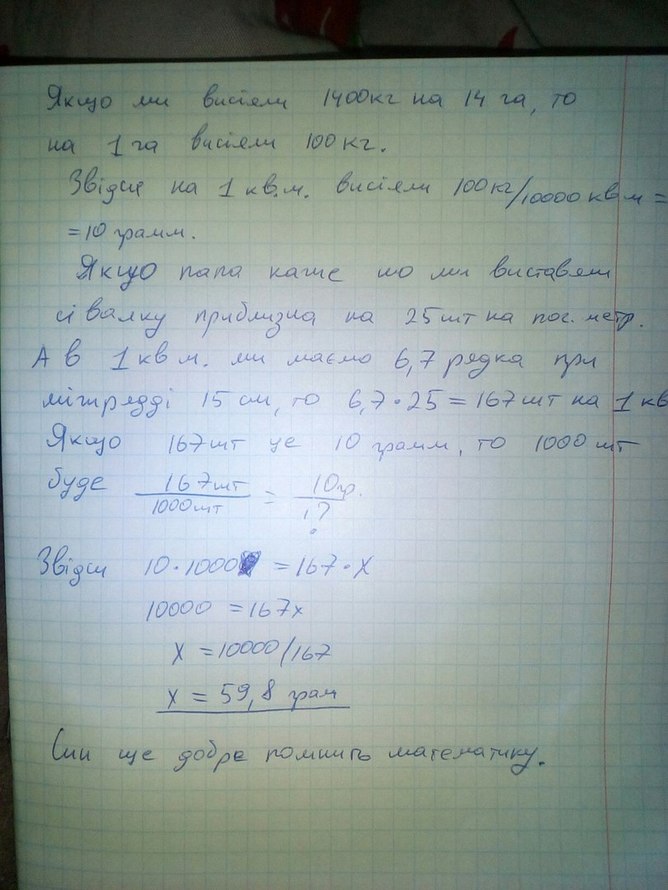 Якщо ми висіяли 1400кг на 14 га, то
на 1 га висіяли 100 кг.
Звідси на 1 кв.м. висіяли 100кг/10000 кв.м =
=10 грамм.
Якщо папа каже шо ми виставяли
сівалку приблизна на 25 шт на пог. метр.
А в 1 кв м. ми маємо 6,7 рядка при
міжрядді 15 см, то 6,7·25=167 шт на 1 кв
Якщо 167 шт це 10 грамм, то 1000 шт
буде 167 шт/1000 шт = 10гр./?
Звідси 10·1000 =167·X
10000 =167x
X =10000/167
x = 59,8 грам
Син ще добре помнить математику.